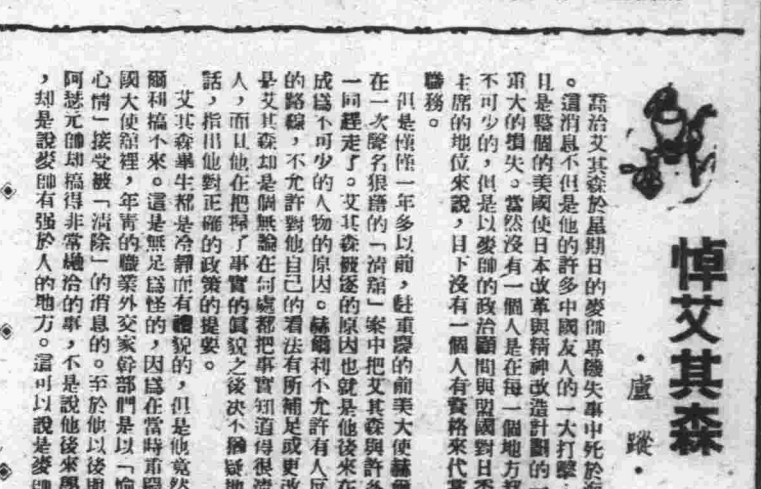 悼艾其森
·盧蹤·
喬治艾其森於星期日的麥帥專機失事中死於海
。這消息不但是他的許多中國友人的一大打擊，
且是整個的美國使日本改革與精神改造計劃的一
重大的損失。當然沒有一個人是在每一個地方都
不可少的，但是以麥帥的政治顧問與盟國對日委
主席的地位來說，目下沒有一個人有資格來代替
職務。
但是僅僅一年多以前，駐重慶的前美大使赫爾
在一次聲名狼藉的「清館」案中把艾其森與許多
一同趕走了。艾其森被逐的原因也就是他後來在
成爲不可少的人物的原因。赫爾利不允許有人反
的路線，不允許對他自己的看法有所補足或更改
是艾其森却是個無論在何處都把事實知道得很清
人，而且他在把握了事實的眞貌之後决不猶疑地
話，指出他對正確的政策的提要。
艾其森畢生都是冷靜而有禮貌的，但是他竟然
爾利搞不來。這是無足爲怪的，因爲在當時重慶
國大使館裡，年青的職業外交家幹部們是以「愉
心情」接受被「清除」的消息的。至於他以後與
阿瑟元帥却搞得非常融洽的事，不是說他後來學
，却是說麥帥有强於人的地方。這可以說是麥帥